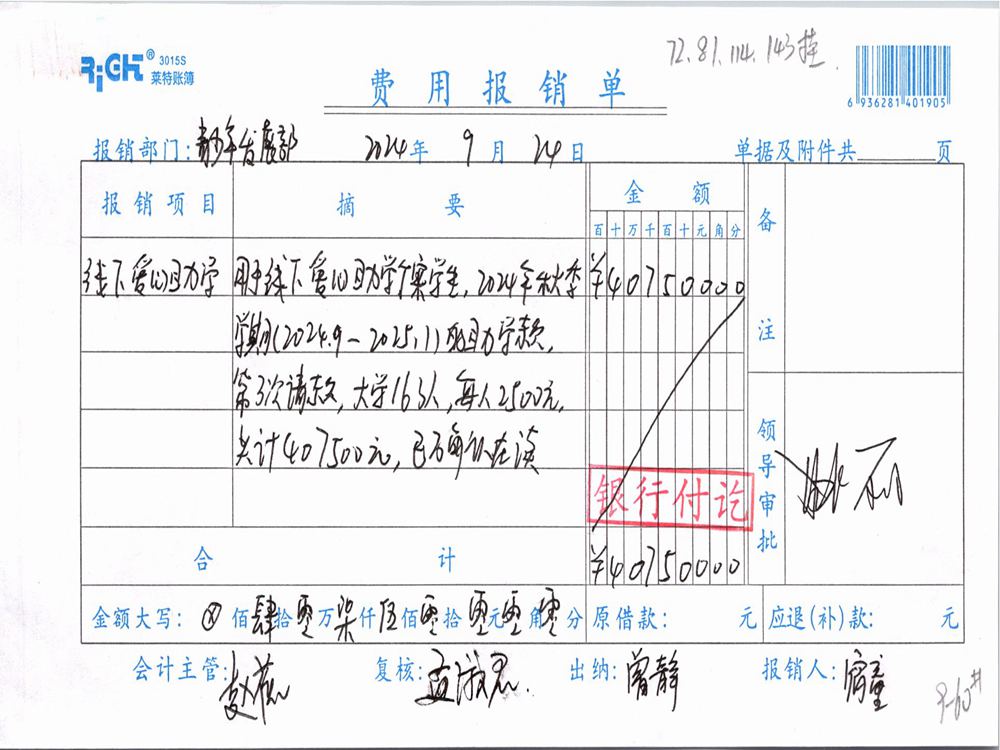 72.81.114.143挂
RiGHT® 3015S
莱特账簿
6 936281 401905
费用报销单
报销部门：青少年发展部 2024年 9月 24日 单据及附件共 页
报销项目 摘要 金额 备注
百十万千百十元角分
线下爱心助学 用于线下爱心助学个案学生，2024年秋季 ¥40750000
学期（2024.9－2025.1）的助学款，
第3次请款，大学163人，每人2500元，
共计407500元，已确认在读
银行付讫
领导审批
合计 ¥40750000
金额大写：⊗佰肆拾零万柒仟伍佰零拾零元零角零分 原借款： 元 应退（补）款： 元
会计主管： 复核： 出纳：曾静 报销人：
9-60#